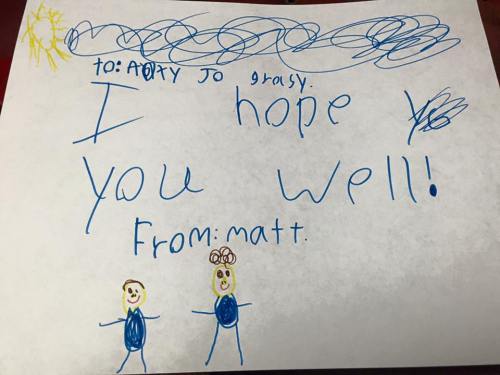 to: Anty Jo grasy.
I hope
you well!
From: matt.